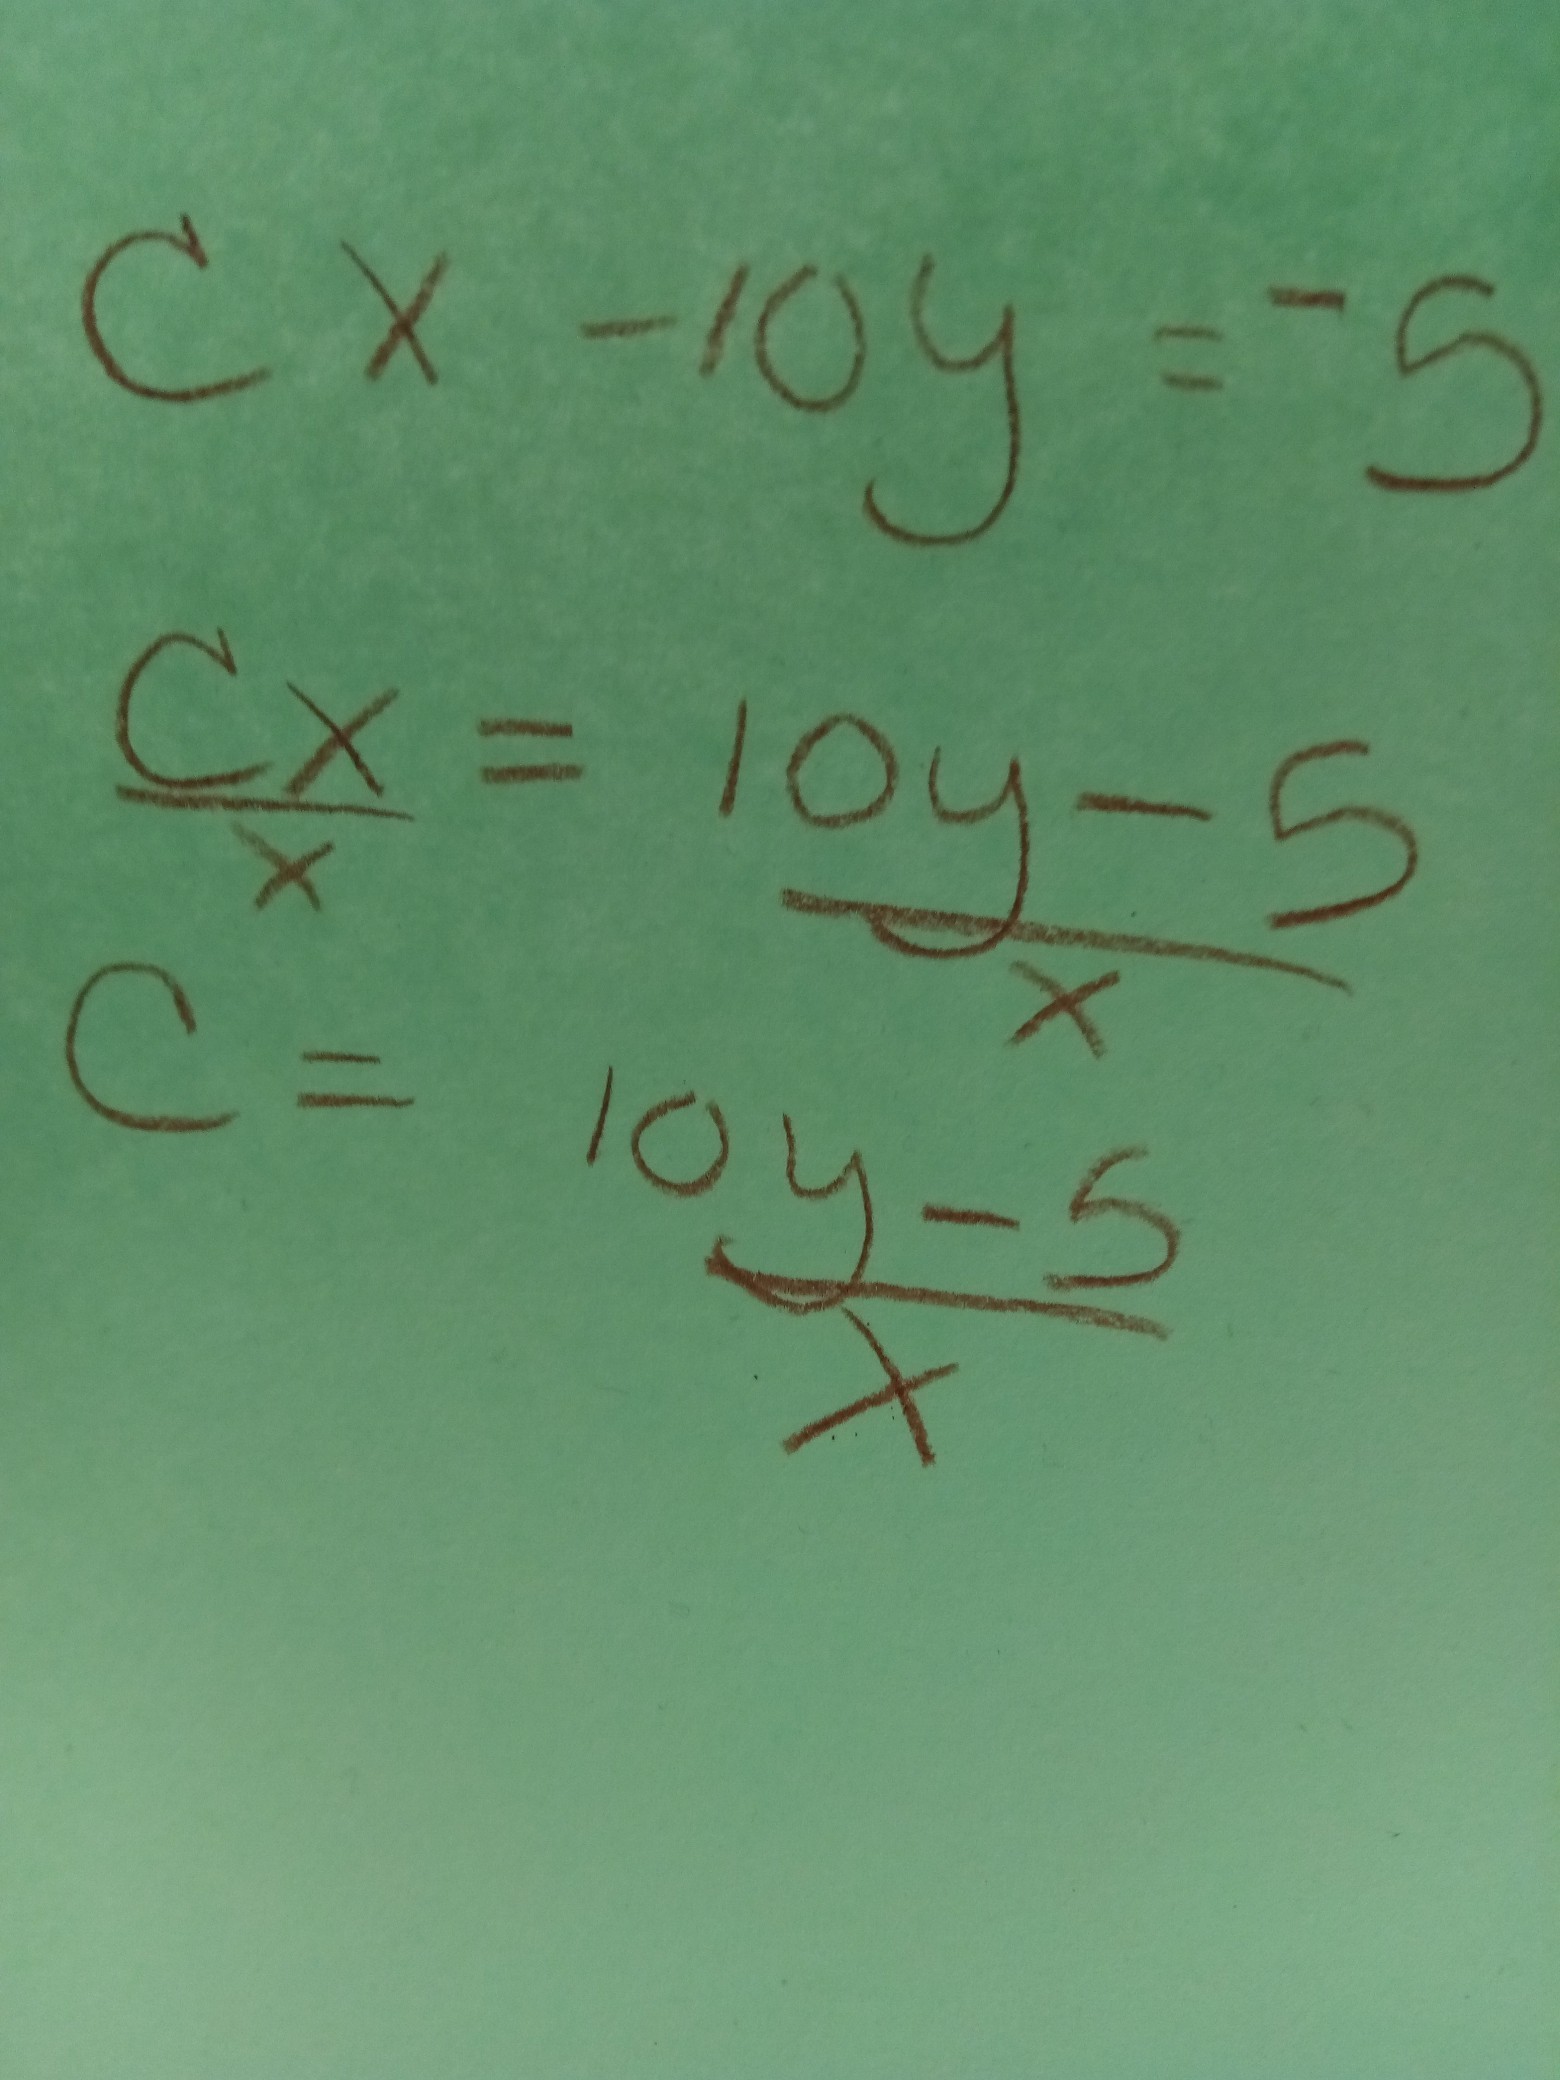 Cx -10y = -5
Cx/x = 10y - 5/x
C = 10y - 5/x